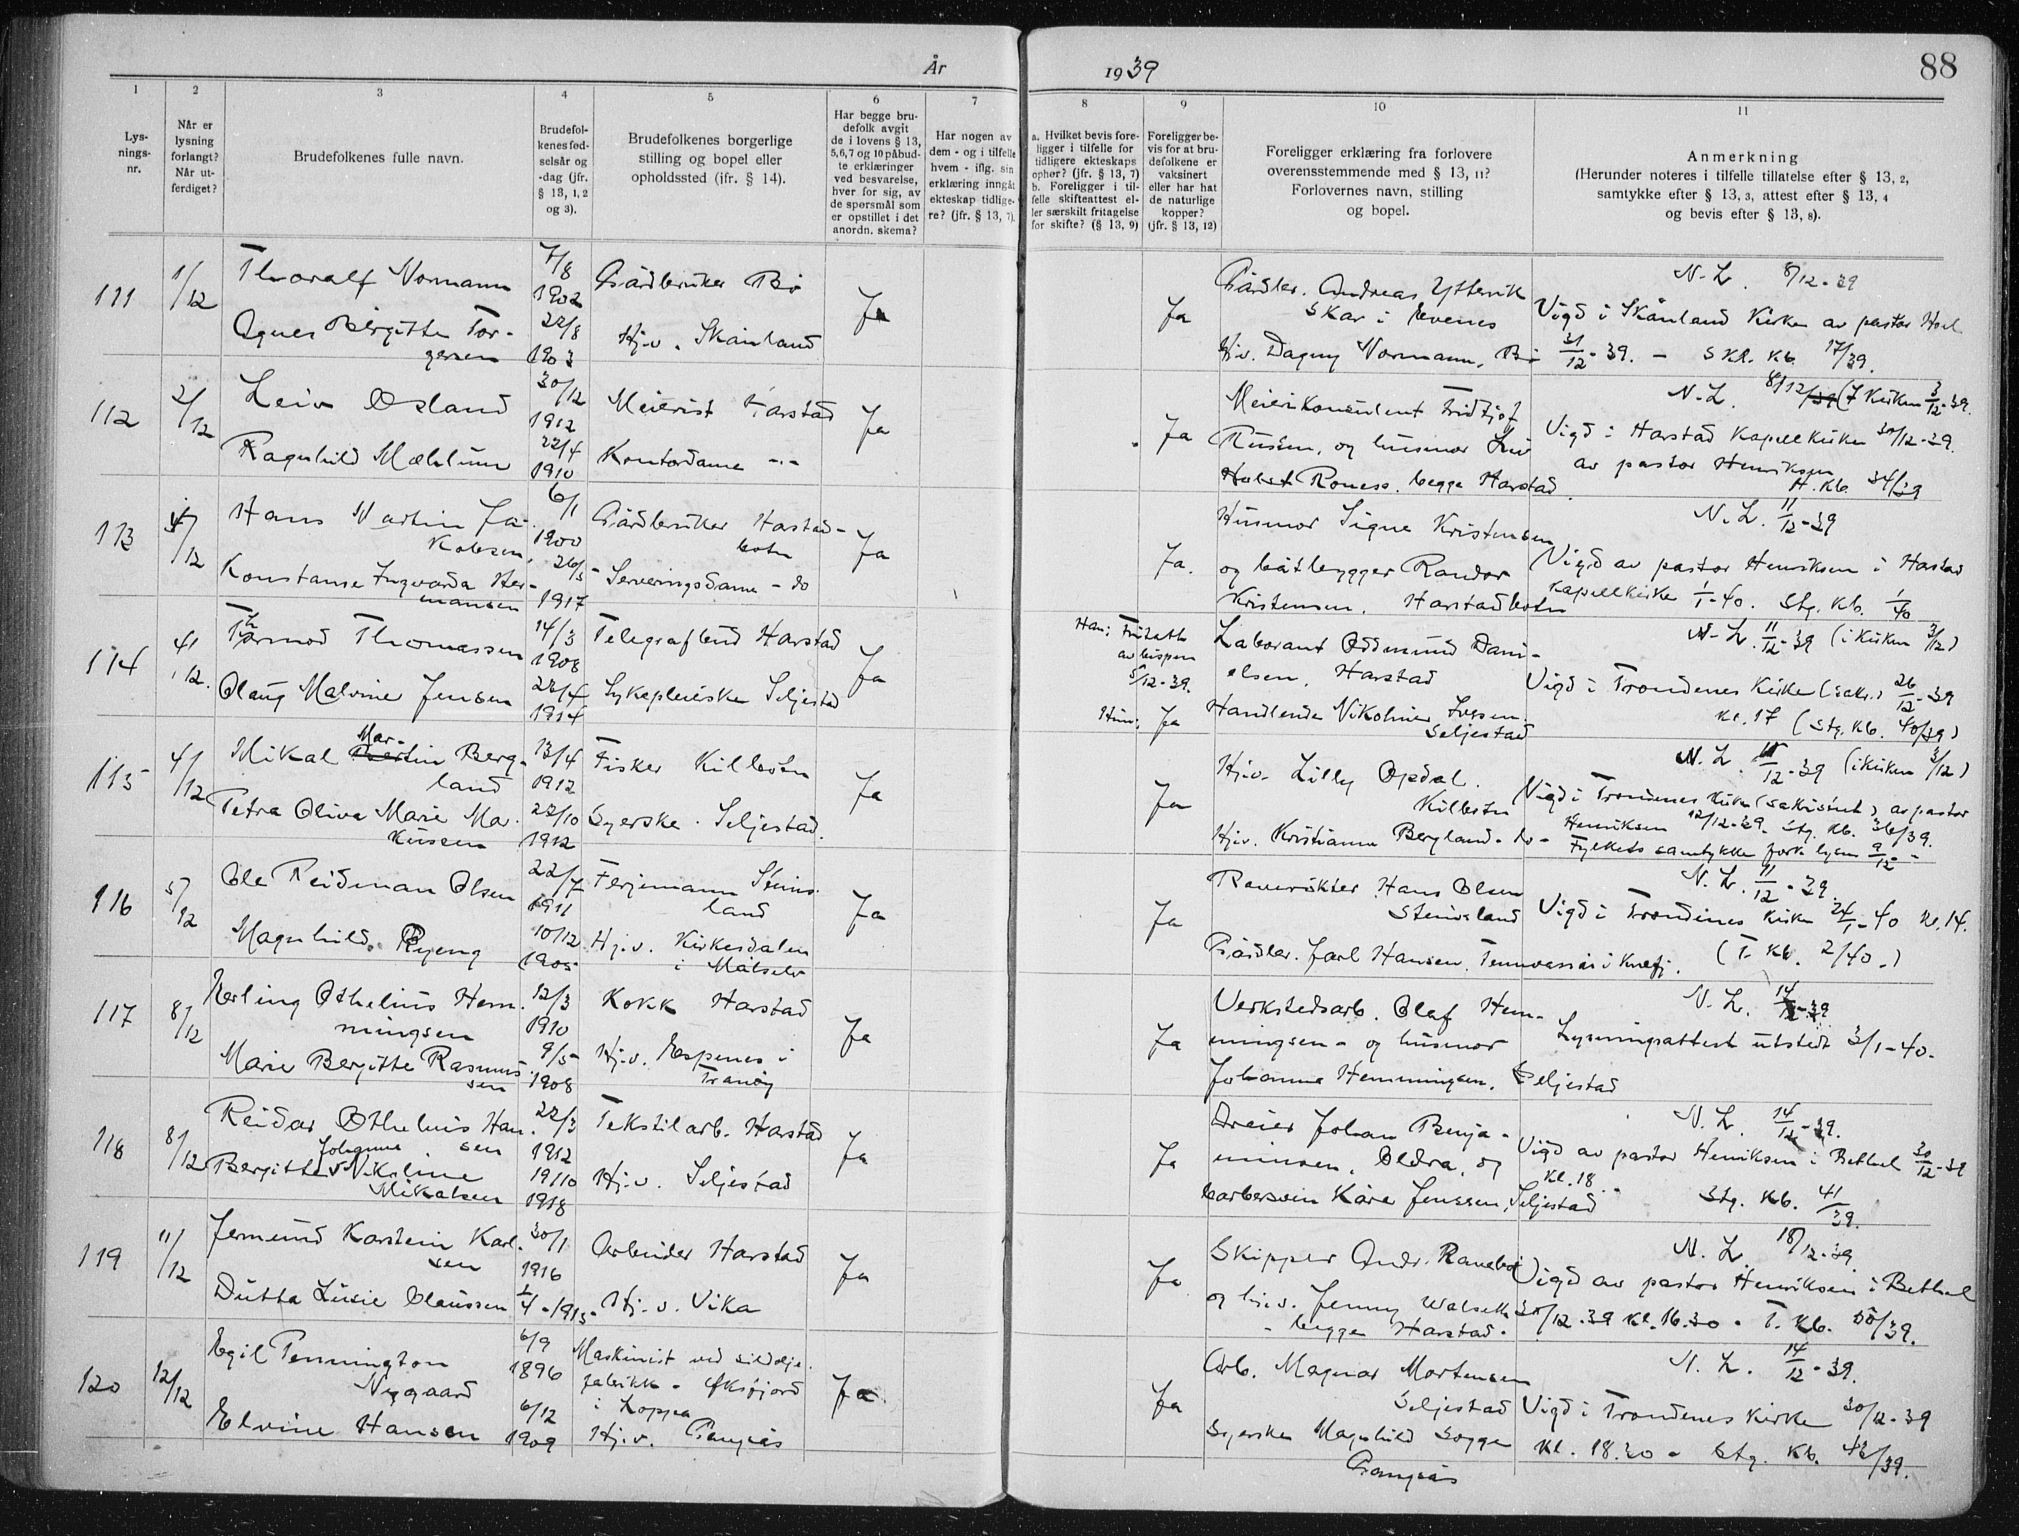 År 1939
88
1 2 3 4 5 6 7 8 9 10 11
Lys-
nings-
nr.
Når er
lysning
forlangt?
Når ut-
ferdiget?
Brudefolkenes fulle navn.
Brudefol-
kenes fød-
selsår og
-dag (jfr.
§ 13, 1, 2
og 3).
Brudefolkenes borgerlige
stilling og bopel eller
opholdssted (jfr. § 14).
Har begge bru-
defolk avgit
de i lovens § 13,
5,6,7 og 10 påbud-
te erklæringer
ved besvarelse,
hver for sig, av
de spørsmål som
er opstillet i det
anordn. skema?
Har nogen av
dem - og i tilfelle
hvem - iflg. sin
erklæring inngåt
ekteskap tidlige-
re? (jfr. § 13, 7).
a. Hvilket bevis fore-
ligger i tilfelle for
tidligere ekteskaps
ophør? (jfr. § 13, 7)
b. Foreligger i til-
felle skifteattest el-
ler særskilt fritagelse
for skifte? (§ 13, 9)
Foreligger be-
vis for at bru-
defolkene er
vaksinert
eller har hat
de naturlige
kopper?
(jfr. § 13, 12)
Foreligger erklæring fra forlovere
overensstemmende med § 13, 11?
Forlovernes navn, stilling
og bopel.
Anmerkning
(Herunder noteres i tilfelle tillatelse efter § 13, 2,
samtykke efter § 13, 3, attest efter § 13, 4
og bevis efter § 13, 8).
111 1/12 Thoralf Normann 7/8 1902 Gårdbruker Bø Ja
Agnes Bergitte Tor-
gersen 22/8 1903 Hj.v. Skånland
Ja Gårdbr. Andreas Yttervik
Skar i Evenes
Hj.v. Dagny Normann, Bø
N.L. 8/12-39
Vigd i Skånland Kirke av pastor
31/12-39. - Skl. Kb. 17/39.
112 2/12 Leiv Øsland 30/12 1912 Meierist Harstad Ja
Ragnhild Mæhlum 22/4 1910 Kontordame -"-
Ja Meierikonsulent Fridtjof
Russen, og husmor Liv
Holst Roness. begge Harstad.
N.L. 8/12/39 (I Kirken 3/12-39.
Vigd i Harstad Kapellkirke 30/12-39.
av pastor Henriksen
H. Kb. 34/39
113 4/12 Hans Martin Ja-
kobsen, 6/1 1900 Gårdbruker Harstad-
botn Ja
Konstanse Ingvarda Her-
mansen 26/5 1917 Serveringsdame - do
Ja. Husmor Signe Kristensen
og båtbygger Randor
Kristensen. Harstadbotn
N.L. 11/12-39
Vigd av pastor Henriksen i Harstad
Kapellkirke 1/1-40. Stg. Kb. 1/40
114 4/12. Thormod Thomassen 14/3 1908 Telegrafbud Harstad Ja
Olaug Malvine Jensen 22/4 1914 Sykepleierske Seljestad
Han: Fritatt
av bispen
5/12-39.
Hun: Ja
Laborant Oddmund Dani-
elsen, Harstad
Handlende Nikoline Iversen.
Seljestad
N.L. 11/12-39 (i Kirken 3/12)
Vigd i Trondenes Kirke (sakr.) 26/12-39
Kl. 17 (Stg. Kb. 40/39)
115 4/12 Mikal Mar-
Bertin Berg-
land 13/4 1912 Fisker Kilbotn Ja
Petra Oliva Marie Mar-
kussen 22/10 1912 Syerske. Seljestad.
Ja Hj.v. Lilly Opdal.
Kilbotn
Hj.v. Kristianna Bergland - do -
N.L. 11/12-39 (i Kirken 3/12)
Vigd i Trondenes Kirke (sakristiet) av pastor
Henriksen 12/12-39. Stg. Kb. 36/39.
Fylkets samtykke fork. lysn. 9/12 -
116 5/12 Ole Reidman Olsen 22/7 1911 Ferjemann Steins-
land Ja
Magnhild Ryeng 10/12 1905 Hj.v. Kirkesdalen
i Målselv
Ja Hans Olsen
Steinsland
Gårdbr. Jarl Hansen, Tennvassås i Kvæfj.
N.L. 11/12-39.
Vigd i Trondenes Kirke 24/1-40 Kl. 14.
(T. Kb. 2/40.)
117 8/12 Erling Othelius Hem-
mingsen 12/3 1910 Kokk Harstad Ja
Marie Bergitte Rasmus-
sen 9/5 1908 Hj.v. Espenes i
Tranøy
Ja Verkstedsarb. Olaf Hem-
mingsen - og husmor
Johanna Hemmingsen, Seljestad
N.L. 14/12-39
Lysningsattest utstedt 3/1-40.
118 8/12 Reidar Othelius Han-
sen 22/3 1912 Tekstilarb. Harstad Ja
Johanne
Bergitte Nikoline
Mikalsen 19/10 1918 Hj.v. Seljestad
Ja Dreier Johan Benja-
minsen, Oldra, og
barbersvein Kåre Jenssen, Seljestad
N.L. 14/12-39.
Vigd av pastor Henriksen i Bethel 30/12-39
Kl. 18. Stg. Kb. 41/39.
119 11/12 Jermund Karstein Karl-
sen 30/1 1916 Arbeider Harstad Ja
Dutta Lusie Claussen 1/4-1915 Hj.v. Vika
Ja Skipper Andr. Ranebo
og hj.v. Jenny Walseth
- begge Harstad.
N.L. 18/12-39.
Vigd av pastor Henriksen i Bethel
30/12-39 Kl. 16.30 - T. Kb. 55/39.
120 12/12 Egil Pennington
Nygaard 6/9 1896 Maskinist ved sildolje-
fabrikk - Øksfjord
i Loppa Ja.
Elvine Hansen 6/12 1909 Hj.v. Gangsås
Ja Arb. Magnar Mortensen
Seljestad
Syerske Magnhild Sogge
Gangsås
N.L. 14/12-39.
Vigd i Trondenes Kirke 30/12-39
Kl. 18.30 - Stg. Kb. 42/39.